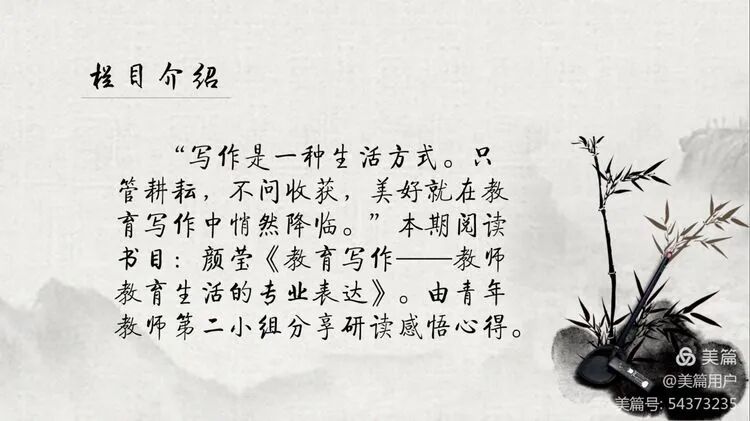 栏目介绍
“写作是一种生活方式。只
管耕耘，不问收获，美好就在教
育写作中悄然降临。”本期阅读
书目：颜莹《教育写作——教师
教育生活的专业表达》。由青年
教师第二小组分享研读感悟心得。
美篇
@美篇用户
美篇号: 54373235